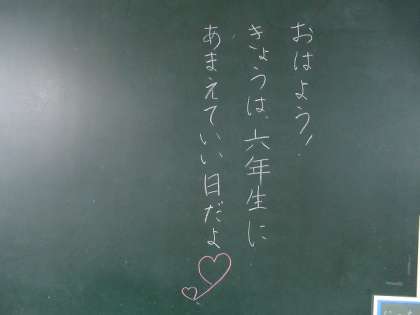 おはよう!
きょうは、六年生に
あまえていい日だよ